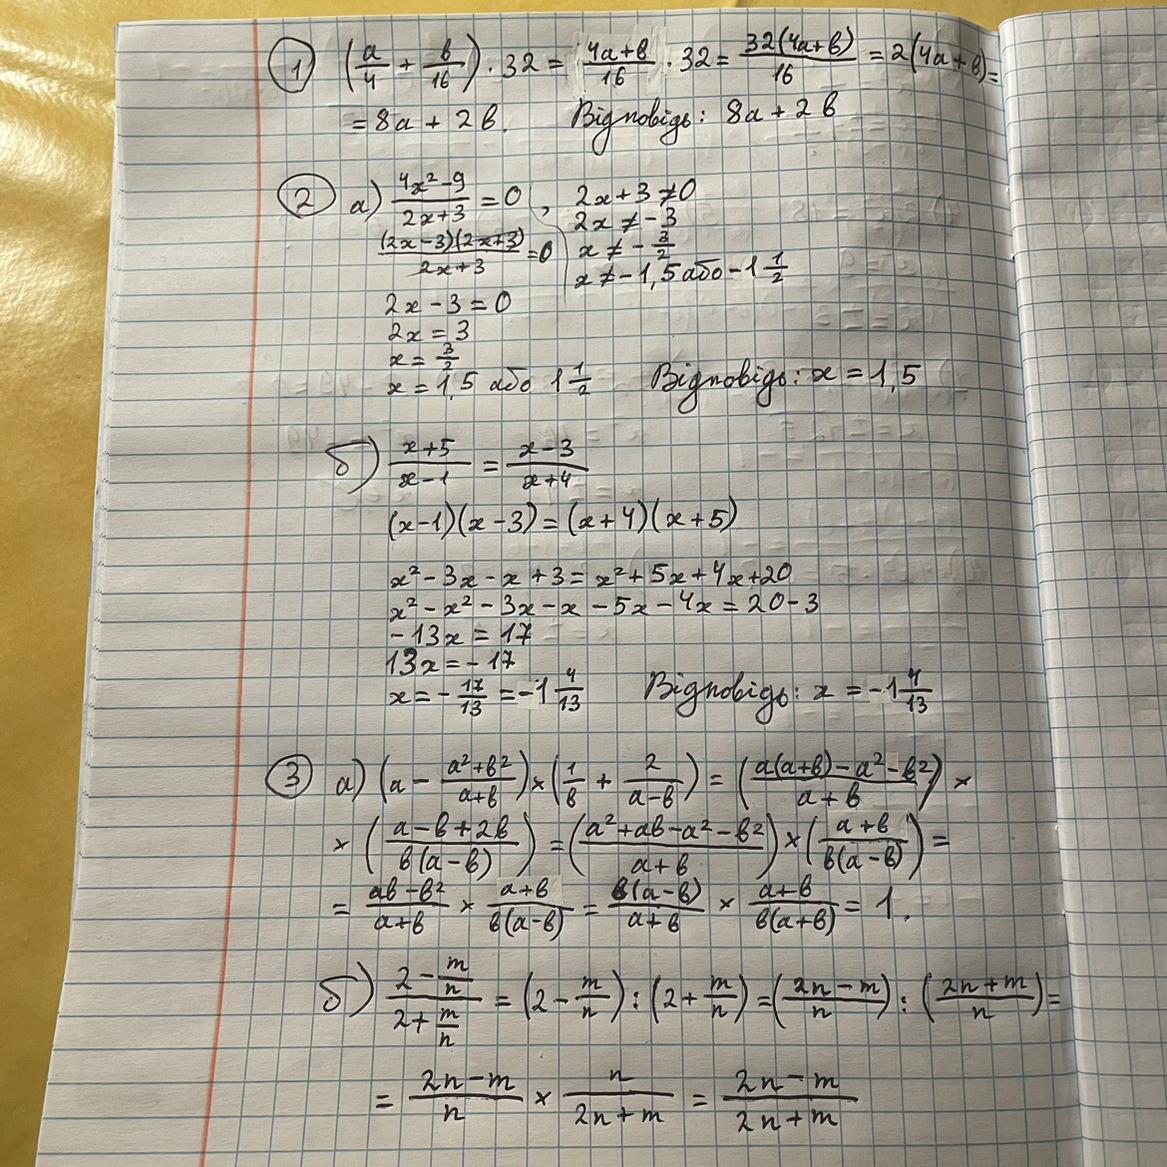 ① (a/4 + в/16) · 32 = (4a+в)/16 · 32 = 32(4a+в)/16 = 2(4a+в)=
= 8a + 2в. Відповідь: 8a + 2в
② а) (4x²-9)/(2x+3) = 0, 2x+3≠0
2x ≠ -3
((2x-3)(2x+3))/(2x+3) = 0 x ≠ -3/2
x ≠ -1,5 або -1 1/2
2x - 3 = 0
2x = 3
x = 3/2
x = 1,5 або 1 1/2 Відповідь: x = 1,5
б) (x+5)/(x-1) = (x-3)/(x+4)
(x-1)(x-3) = (x+4)(x+5)
x² - 3x - x + 3 = x² + 5x + 4x + 20
x² - x² - 3x - x - 5x - 4x = 20 - 3
-13x = 17
13x = -17
x = -17/13 = -1 4/13 Відповідь: x = -1 4/13
③ а) (a - (a²+в²)/(a+в)) × (1/в + 2/(a-в)) = ((a(a+в) - a² - в²)/(a+в)) ×
× ((a-в+2в)/(в(a-в))) = ((a²+ав-a²-в²)/(a+в)) × ((a+в)/(в(a-в))) =
= (ав-в²)/(a+в) × (a+в)/(в(a-в)) = (в(a-в))/(a+в) × (a+в)/(в(a+в)) = 1.
б) (2 - m/n)/(2 + m/n) = (2 - m/n) : (2 + m/n) = ((2n-m)/n) : ((2n+m)/n) =
= (2n-m)/n × n/(2n+m) = (2n-m)/(2n+m)